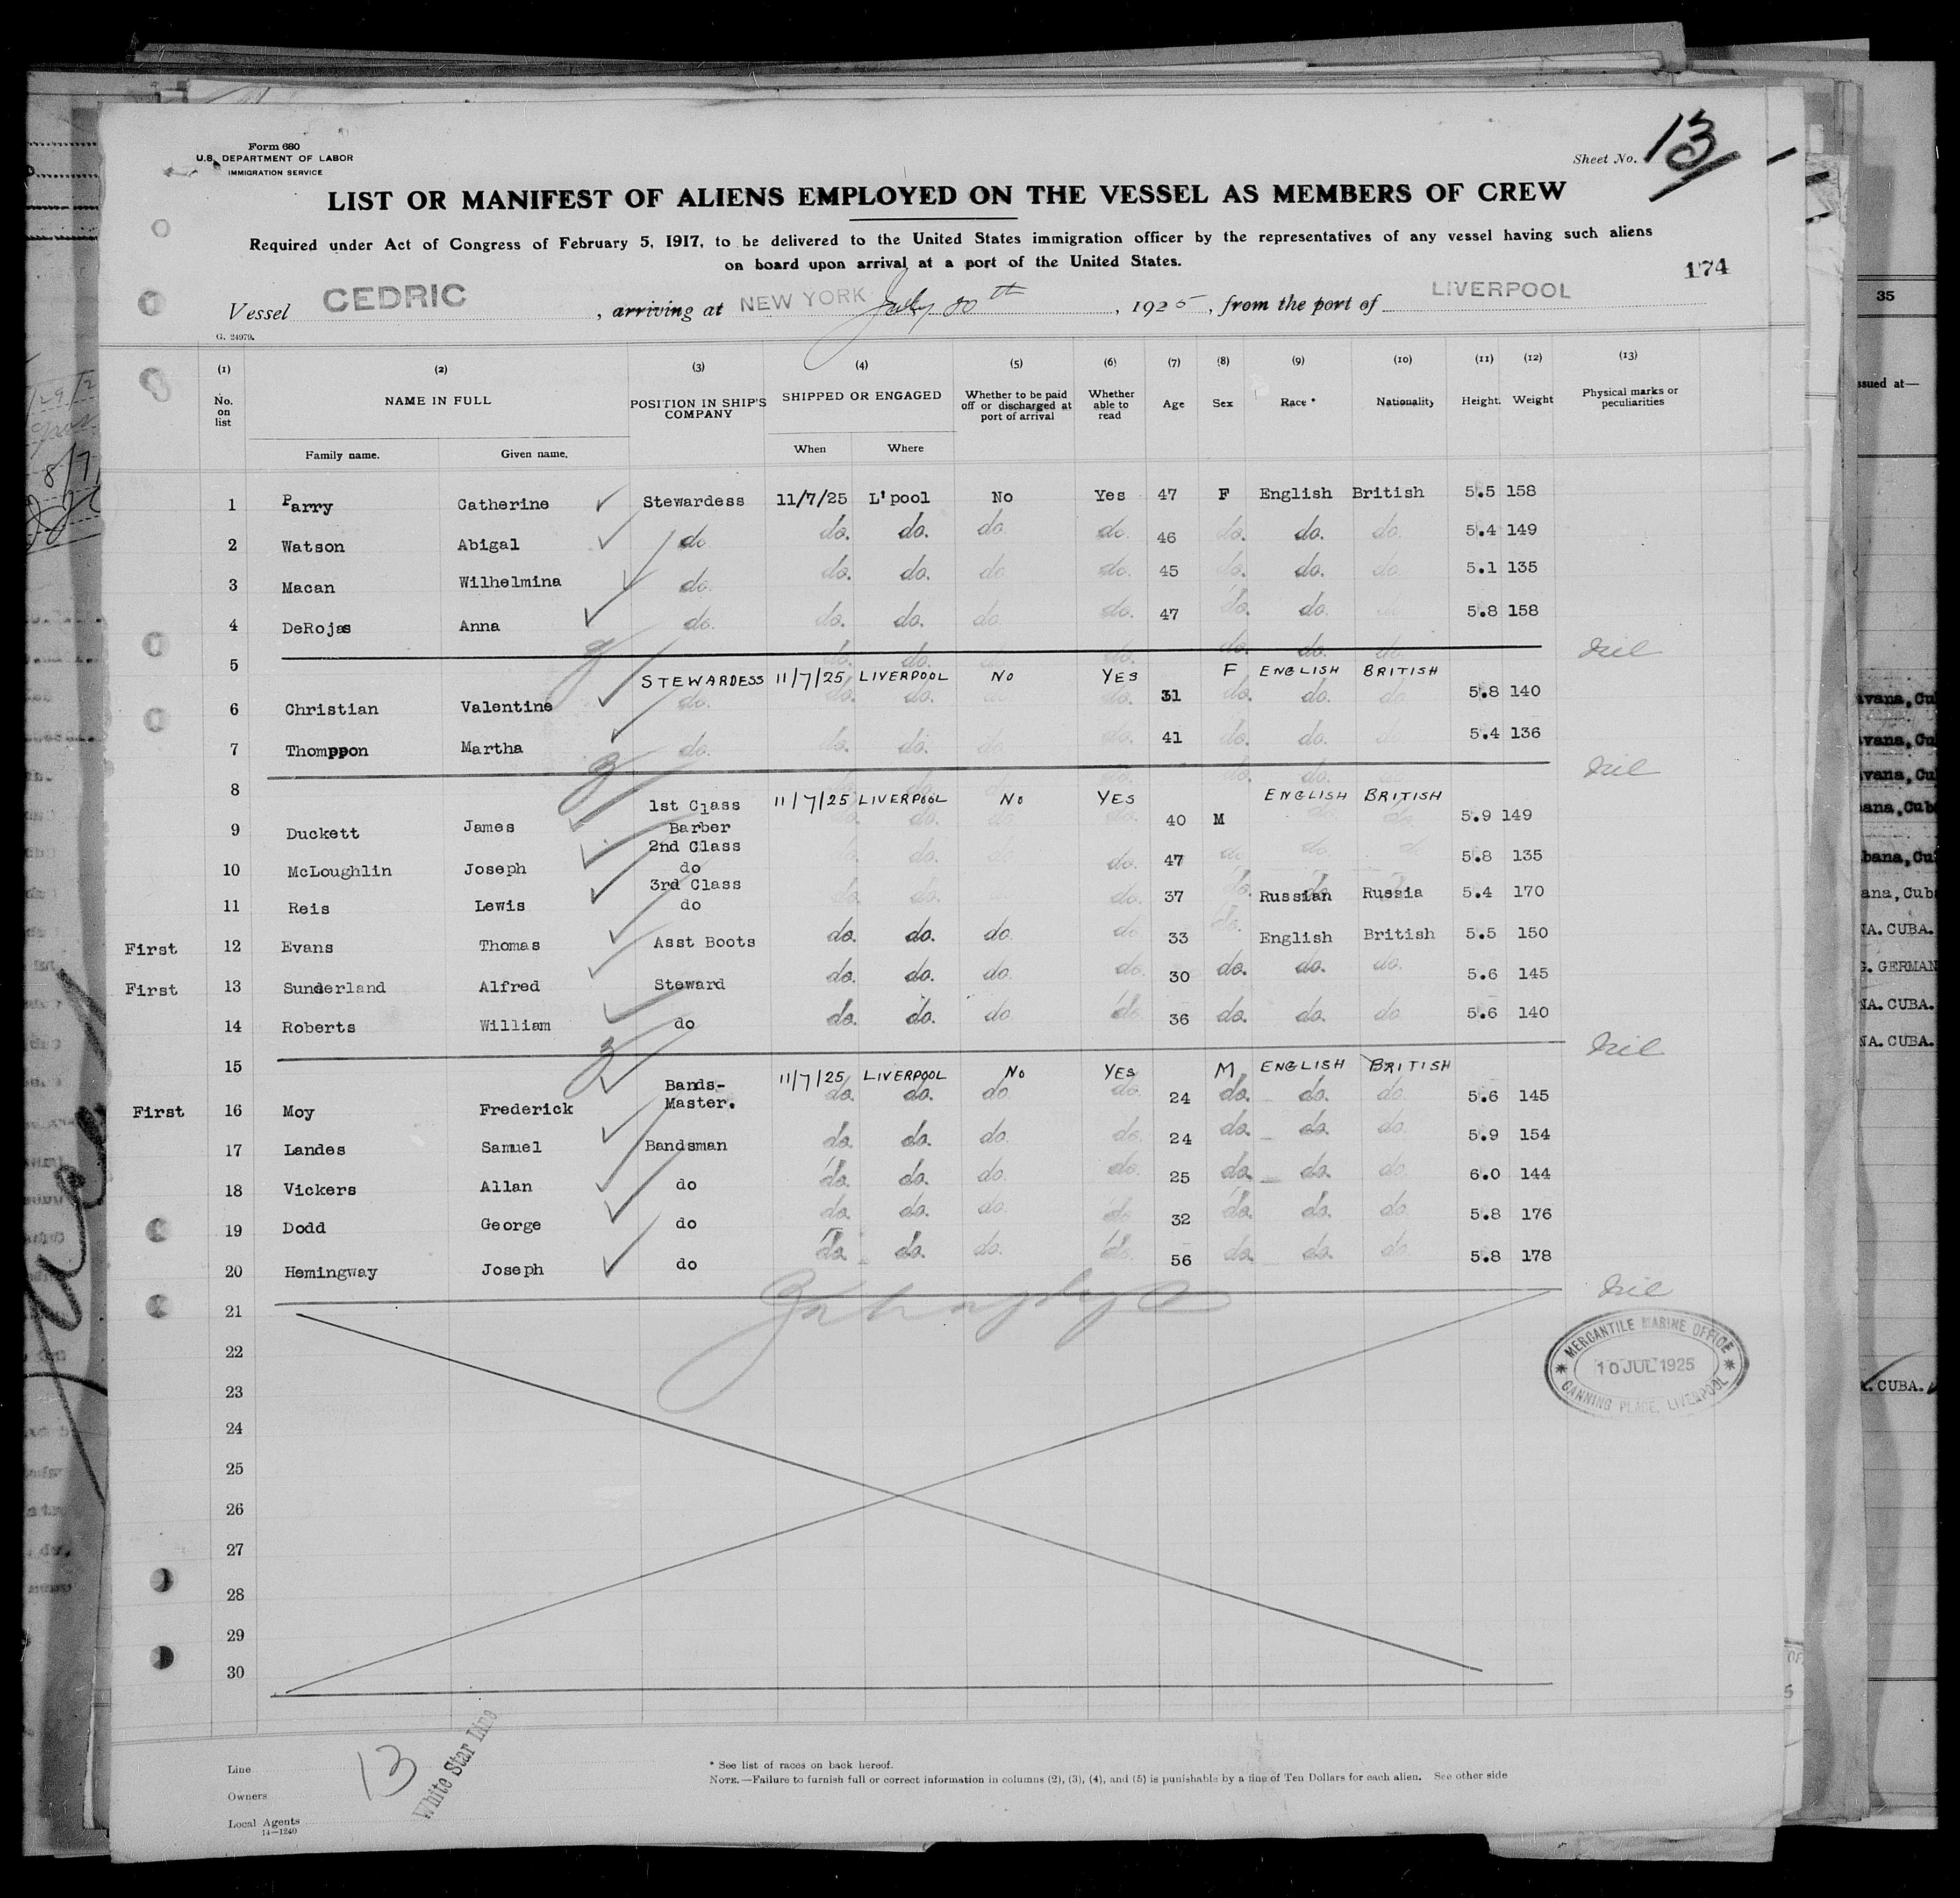 Form 680
U.S. DEPARTMENT OF LABOR
IMMIGRATION SERVICE
Sheet No. 13
LIST OR MANIFEST OF ALIENS EMPLOYED ON THE VESSEL AS MEMBERS OF CREW
Required under Act of Congress of February 5, 1917, to be delivered to the United States immigration officer by the representatives of any vessel having such aliens
on board upon arrival at a port of the United States.
174
Vessel CEDRIC, arriving at NEW YORK July th, 1925, from the port of LIVERPOOL
G. 24979.
(1) (2) (3) (4) (5) (6) (7) (8) (9) (10) (11) (12) (13)
No. on list NAME IN FULL POSITION IN SHIP'S COMPANY SHIPPED OR ENGAGED Whether to be paid off or discharged at port of arrival Whether able to read Age Sex Race * Nationality Height. Weight Physical marks or peculiarities
Family name. Given name. When Where
1 Parry Catherine Stewardess 11/7/25 L'pool No Yes 47 F English British 5.5 158
2 Watson Abigal do. do. do. do. do. 46 do. do. do. 5.4 149
3 Macan Wilhelmina do. do. do. do. do. 45 do. do. do. 5.1 135
4 DeRojas Anna do. do. do. do. do. 47 do. do. 5.8 158
5 do. do. do. do. do. do. Nil
STEWARDESS 11/7/25 LIVERPOOL NO YES F ENGLISH BRITISH
6 Christian Valentine do. do. do. do. 31 do. do. do. 5.8 140
7 Thomppon Martha do. do. do. do. do. 41 do. do. do. 5.4 136
8 Nil
1st Class 11/7/25 LIVERPOOL NO YES ENGLISH BRITISH
9 Duckett James Barber 40 M 5.9 149
2nd Class
10 McLoughlin Joseph do do. do. 47 do do do 5.8 135
3rd Class
11 Reis Lewis do do. do. do. 37 do. Russian Russia 5.4 170
First 12 Evans Thomas Asst Boots do. do. do. do 33 do. English British 5.5 150
First 13 Sunderland Alfred Steward do. do. do. do. 30 do. do. do. 5.6 145
14 Roberts William do do. do. do do 36 do. do. do. 5.6 140
15 Nil
Bands- 11/7/25 LIVERPOOL NO YES M ENGLISH BRITISH
First 16 Moy Frederick Master. do. do. do. do. 24 do. do. do. 5.6 145
17 Landes Samuel Bandsman do. do. do. do. 24 do. do. do. 5.9 154
18 Vickers Allan do do. do. do. do. 25 do. do. do. 6.0 144
19 Dodd George do do. do. do. do 32 do. do. do. 5.8 176
20 Hemingway Joseph do do. do. do. do. 56 do. do. do. 5.8 178
21 Nil
22
23
24
25
26
27
28
29
30
MERCANTILE MARINE OFFICE
10 JUL 1925
CANNING PLACE, LIVERPOOL
Line
Owners
Local Agents
14—1240
13
White Star Line
* See list of races on back hereof.
NOTE.—Failure to furnish full or correct information in columns (2), (3), (4), and (5) is punishable by a fine of Ten Dollars for each alien. See other side
35
ssued at—
vana, Cu
vana, Cu
vana, Cu
ana, Cub
bana, Cu
ana, Cub
NA. CUBA.
G. GERMAN
NA. CUBA.
NA. CUBA.
A. CUBA.